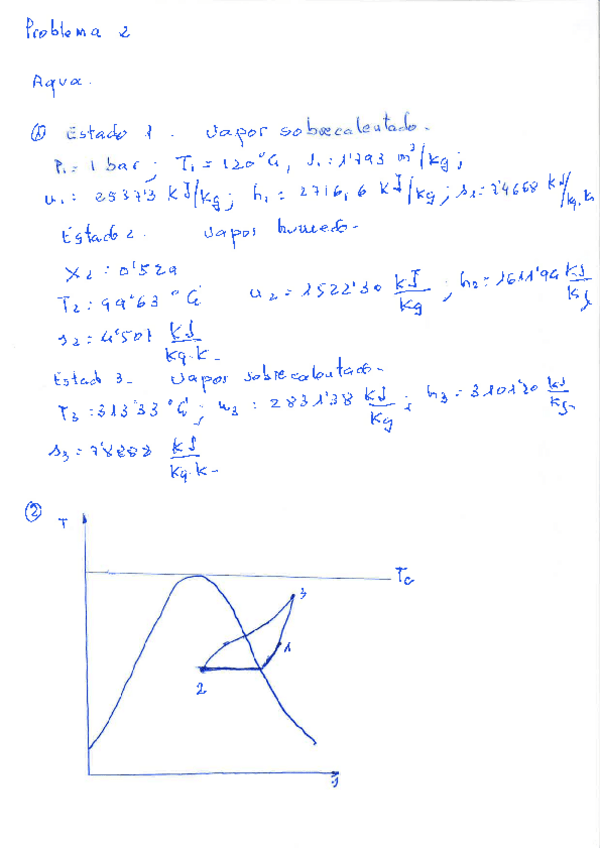 Problema 2
Agua.
① Estado 1. Vapor sobrecalentado.
P₁ = 1 bar; T₁ = 120°C, v₁ = 1'793 m³/kg;
u₁ = 2537'3 kJ/kg; h₁ = 2716,6 kJ/kg; s₁ = 7'4668 kJ/kg.K
Estado 2. Vapor humedo.
X₂ = 0'529
T₂ = 99'63 °C u₂ = 1522'30 kJ/kg; h₂ = 1611'94 kJ/kg
s₂ = 4'501 kJ/kg.K.
Estad 3. Vapor sobrecalentado.
T₃ = 313'33 °C; u₃ = 2831'38 kJ/kg; h₃ = 3101'20 kJ/kg.
s₃ = 7'8888 kJ/kg.K.
②
T
Tc
3
1
2
s